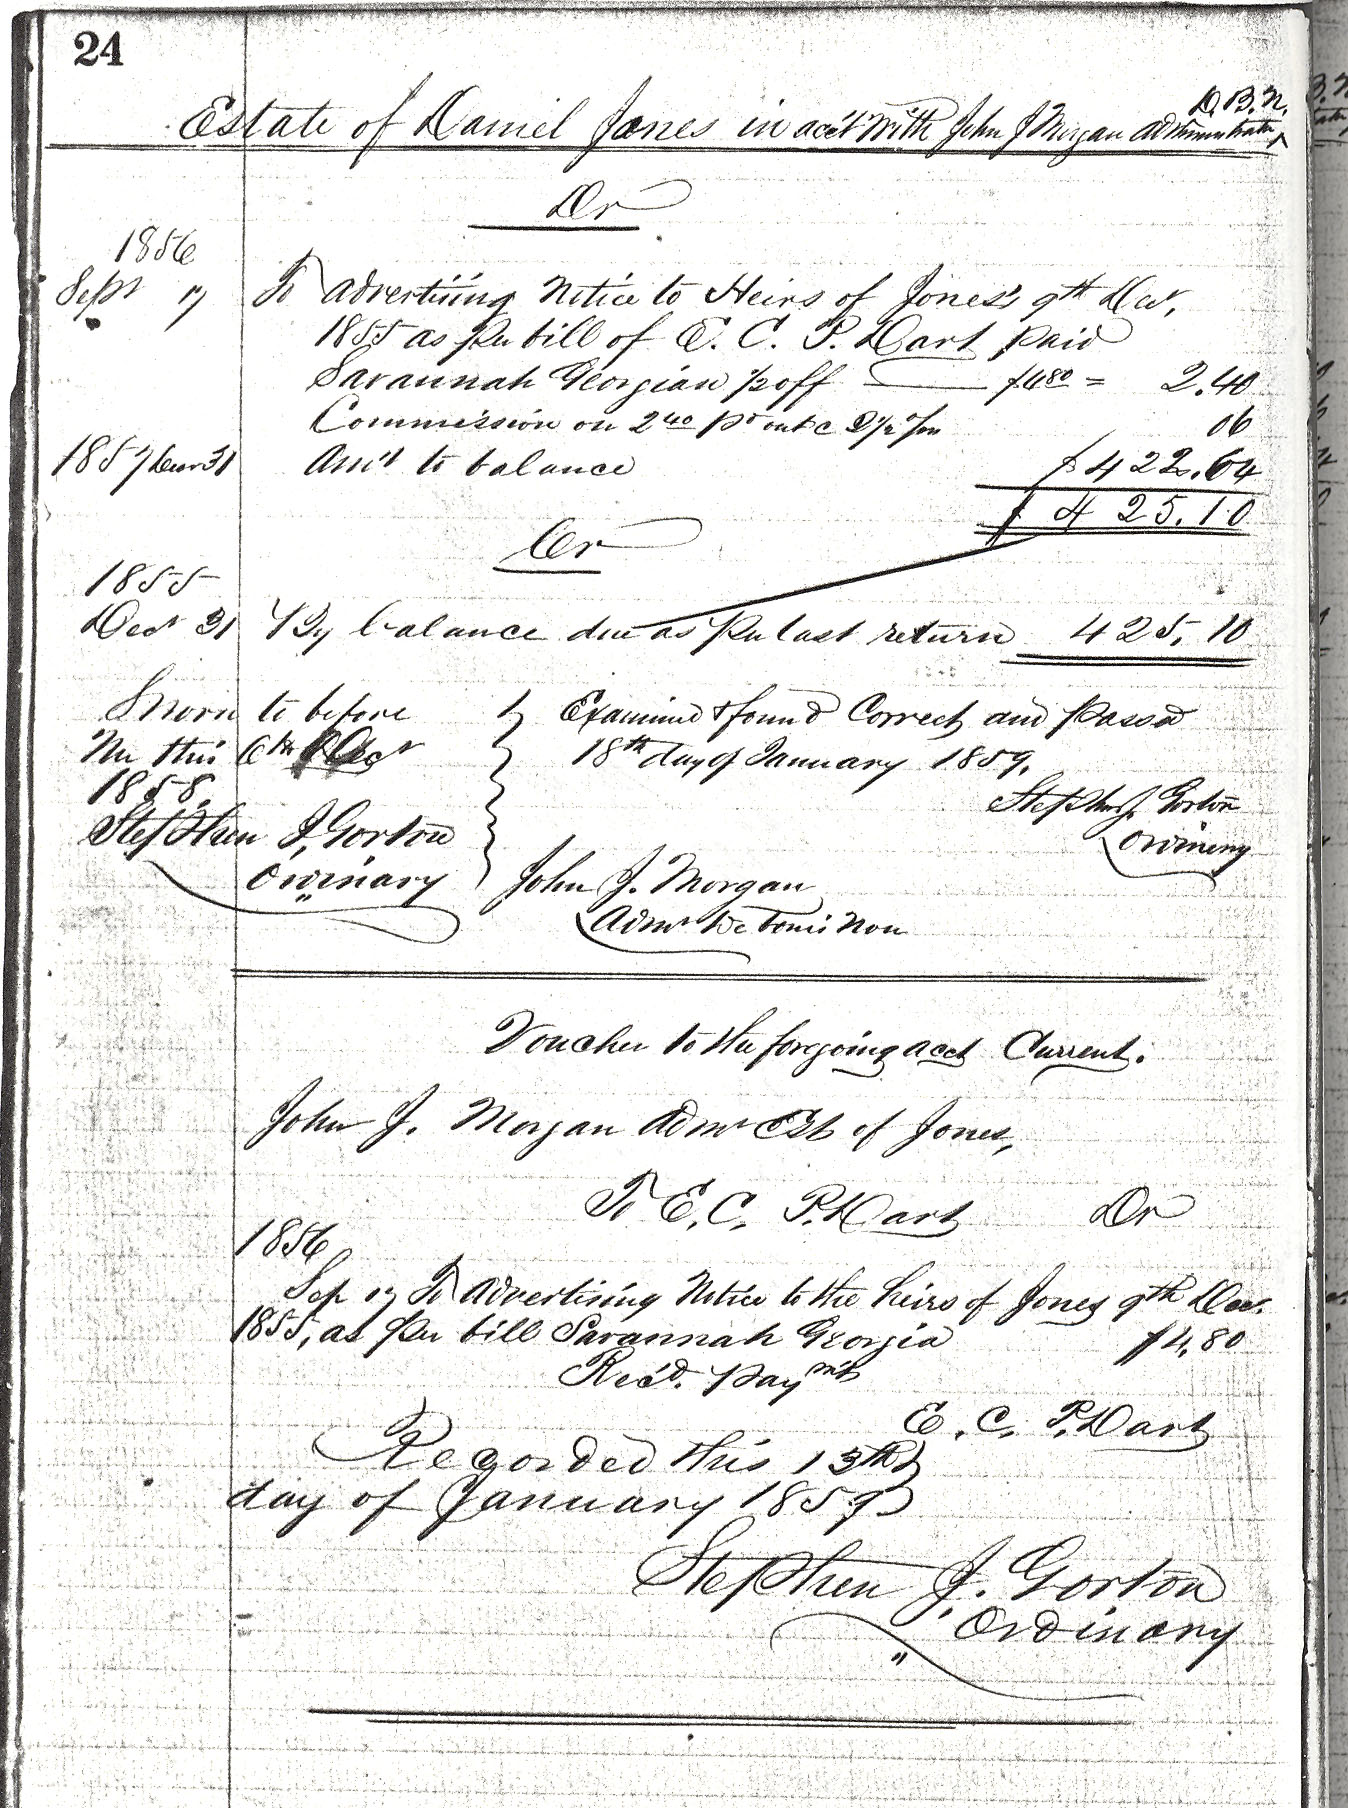 24
Estate of Daniel Jones in acct with John J Morgan Administrator D. B. N.
Dr
1856
Sept 17 To advertising Notice to Heirs of Jones's 9th Decr,
1855 as per bill of E. C. P. Dart paid
Savannah Georgian ½ off $4.80 = 2.40
Commission on 2.40 pd out @ 2½ pr ct 06
1857 Decr 31 Amt to balance $422.64
$425.10
Cr
1855
Decr 31 By balance due as per last return 425.10
Sworn to before
me this 6th Decr
1858.
Stephen J. Gorton
Ordinary
Examined & found Correct and passed
18th day of January 1859.
Stephen J. Gorton
Ordinary
John J. Morgan
Admr De bonis non
Voucher to the foregoing acct Current.
John J. Morgan Admr Est of Jones,
To E. C. P. Dart Dr
1856
Sep 17 To advertising Notice to the heirs of Jones 9th Dec.
1855, as per bill Savannah Georgia $4.80
Rec'd. paymnt
E. C. P. Dart
Recorded this 13th
day of January 1859
Stephen J. Gorton
Ordinary